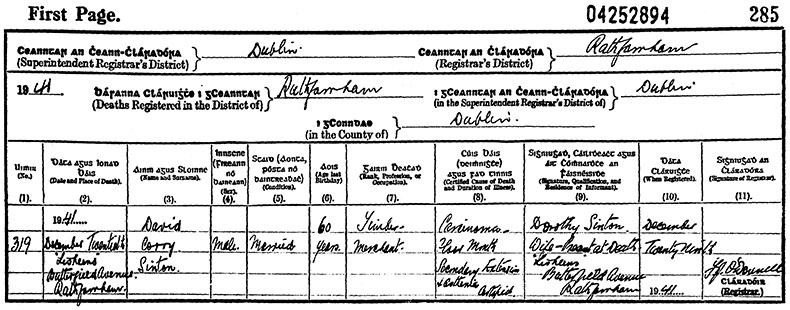 First Page. 04252894 285
Ceanntar an Ċeann-Ċláraḋóra Dublin. Ceanntar an Ċláraḋóra Rathfarnham
(Superintendent Registrar's District) (Registrar's District)
1941 Dáranna Cláruiġṫe i gCeanntar Rathfarnham i gCeanntar an Ceann-Ċláraḋóra Dublin.
(Deaths Registered in the District of) (in the Superintendent Registrar's District of)
i gConndae Dublin.
(in the County of)
Uimir (No.) (1).
Dáta agus Ionad Báis (Date and Place of Death) (2).
Ainm agus Sloinne (Name and Surname). (3).
(Sex). (4).
(Condition). (5).
Aois (Age last Birthday) (6)
Gairm Beaṫaḋ (Rank, Profession, or Occupation). (7).
(Certified Cause of Death and Duration of Illness). (8).
(Signature, Qualification, and Residence of Informant). (9).
Dáta Cláruiġṫe (When Registered). (10).
(Signature of Registrar). (11).
1941 David 60 Timber Carcinoma Dorothy Sinton. December
319 December Twentieth Corry Male. Married years. Merchant. Wife - Present at Death Twenty Ninth
"Lisheens" Sinton. "Lisheens"
Butterfield Avenue Secondary Butterfield Avenue J.J. O'Donnell
Rathfarnham Rathfarnham 1941 Cláraḋóir
(Registrar.)